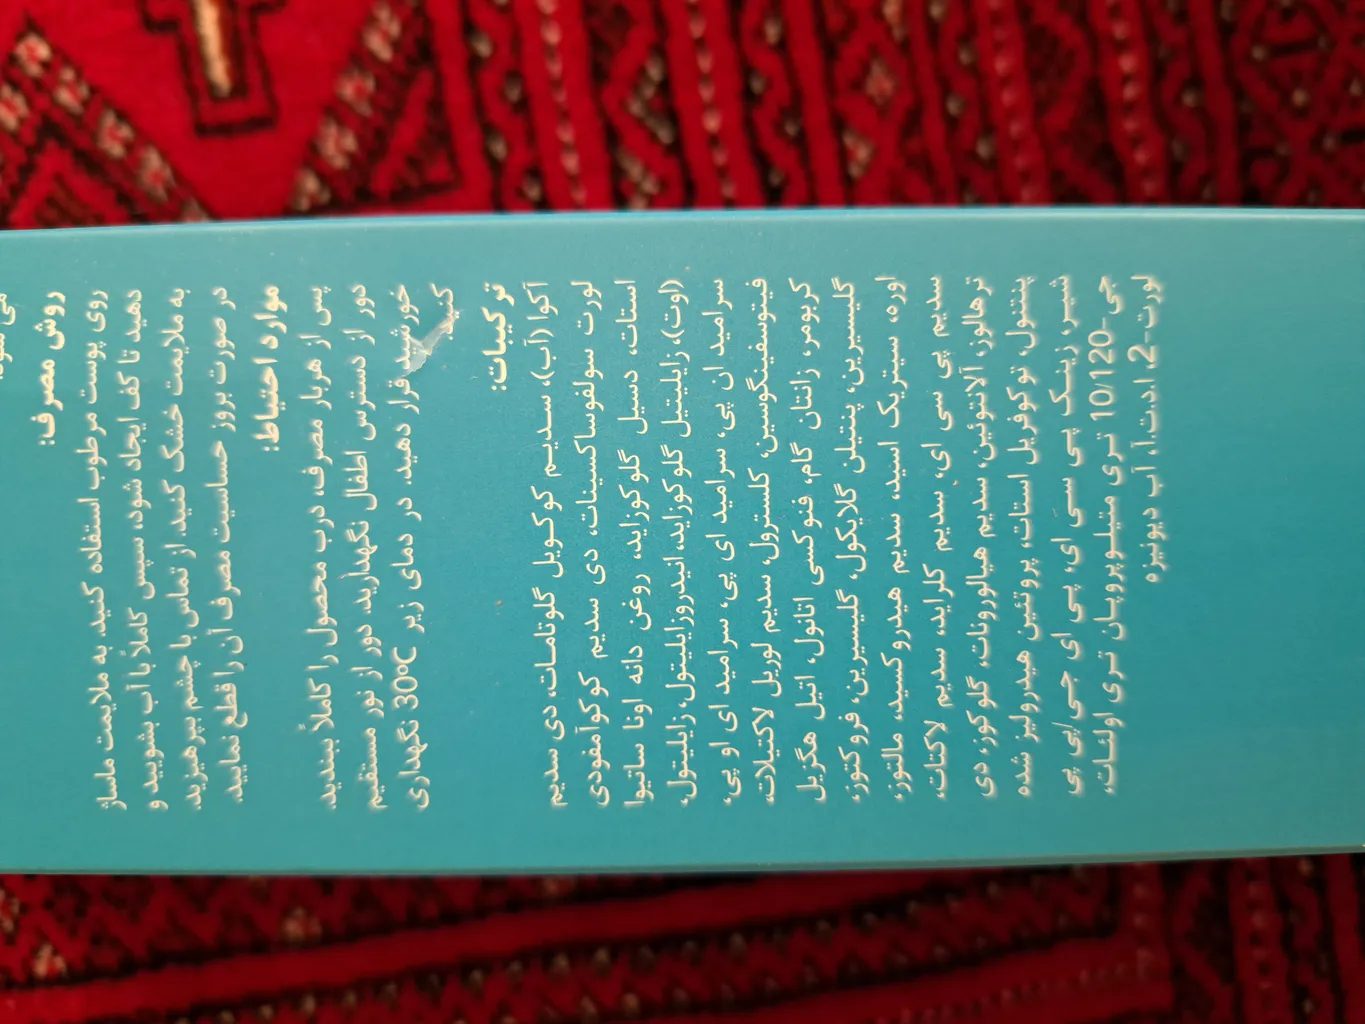 روش مصرف:
روی پوست مرطوب استفاده کنید. به ملایمت ماساژ
دهید تا کف ایجاد شود، سپس کاملاً با آب بشویید و
به ملایمت خشک کنید. از تماس با چشم بپرهیزید.
در صورت بروز حساسیت مصرف آن را قطع نمایید.
موارد احتیاط:
پس از هربار مصرف، درب محصول را کاملاً ببندید.
دور از دسترس اطفال نگهدارید. دور از نور مستقیم
خورشید قرار دهید. در دمای زیر 30°C نگهداری
کنید.
ترکیبات:
آکوا (آب)، سدیم کوکویل گلوتامات، دی سدیم
لورت سولفوساکسینات، دی سدیم کوکوآمفودی
استات، دسیل گلوکوزاید، روغن دانه اونا ساتیوا
(اوت)، زایلیتیل گلوکوزاید، انیدروزایلیتول، زایلیتول،
سرامید ان پی، سرامید ای پی، سرامید ای او پی،
فیتوسفینگوسین، کلسترول، سدیم لوریل لاکتیلات،
کربومر، زانتان گام، فنوکسی اتانول، اتیل هگزیل
گلیسیرین، پنتیلن گلایکول، گلیسیرین، فروکتوز،
اوره، سیتریک اسید، سدیم هیدروکسید، مالتوز،
سدیم پی سی ای، سدیم کلراید، سدیم لاکتات،
ترهالوز، آلانتوئین، سدیم هیالورونات، گلوکوز، دی
پنتنول، توکوفریل استات، پروتئین هیدرولیز شده
شیر، زینک پی سی ای، پی ای جی/پی پی
جی-10/120 تری متیلوپروپان تری اولئات،
لورت-2، ا.د.ت.آ، آب دیونیزه